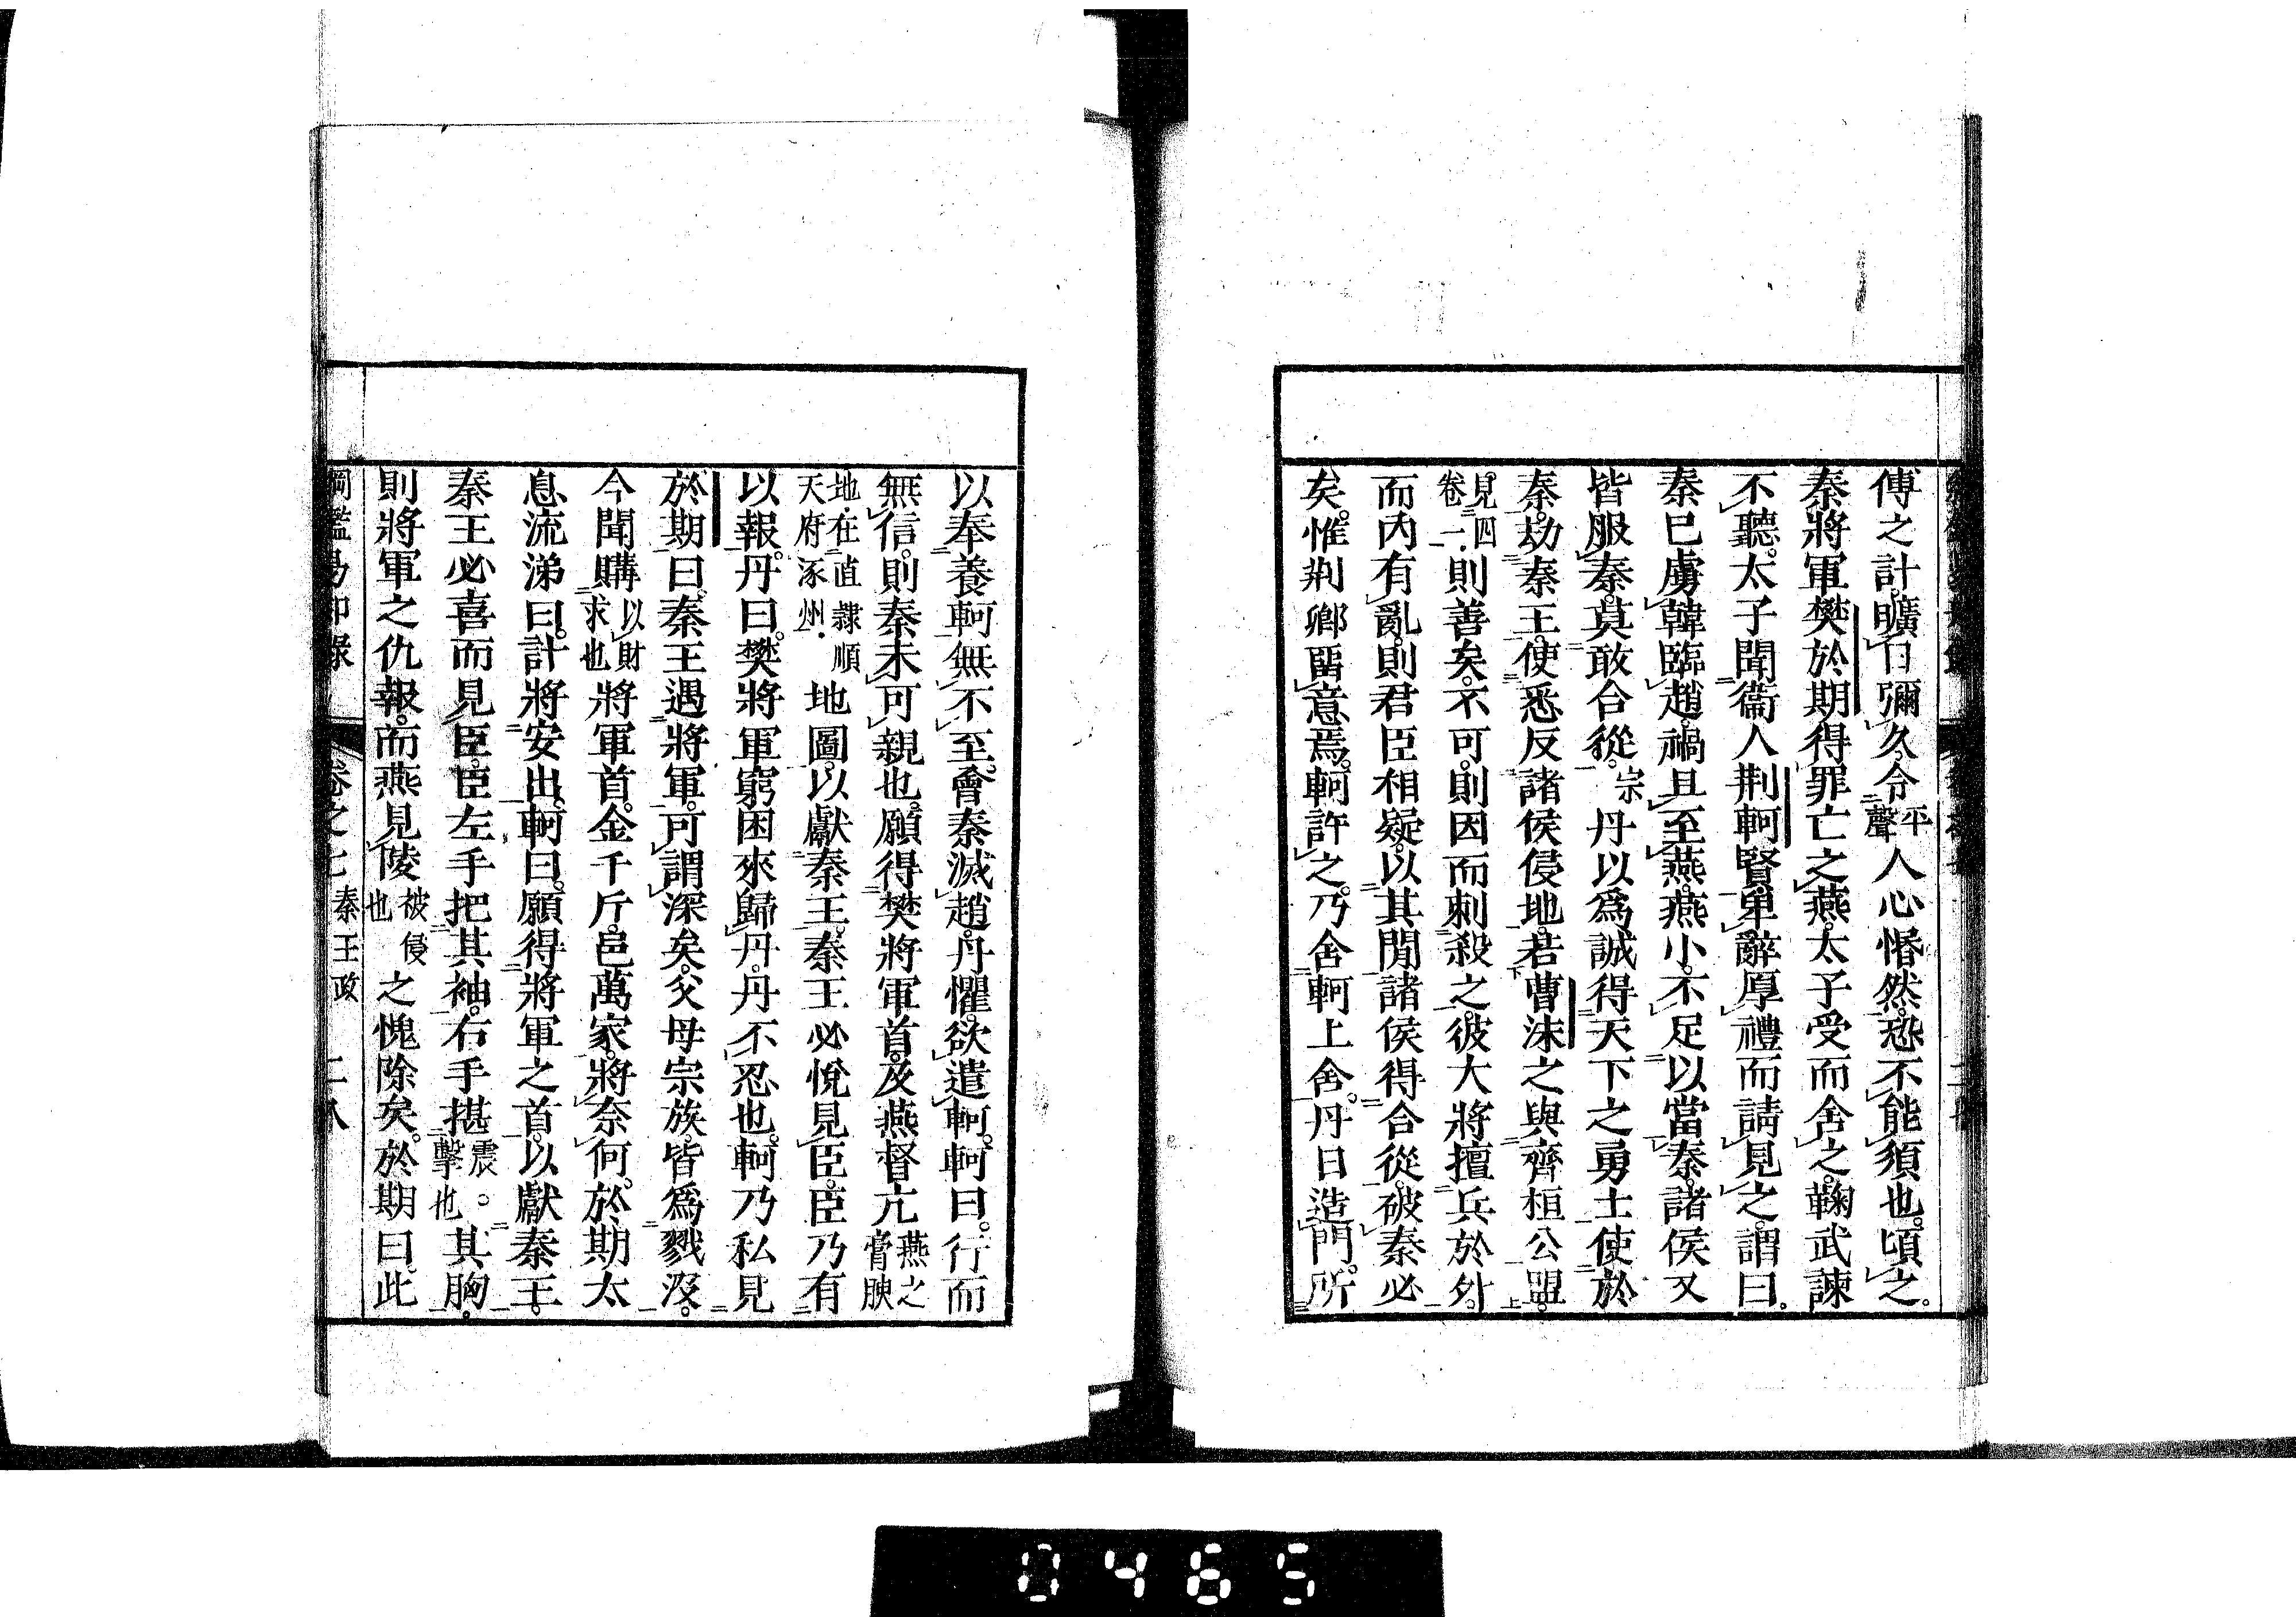 傅之計。曠日彌久。令平聲人心惛然。恐不能須也。頃之。
秦將軍樊於期得罪亡之燕。太子受而舍之。鞠武諫
不聽。太子聞衞人荆軻賢。卑辭厚禮而請見之。謂曰。
秦已虜韓臨趙。禍且至燕。燕小。不足以當秦。諸侯又
皆服秦。莫敢合從。宗丹以爲誠得天下之勇士使於
秦。劫秦王。使悉反諸侯侵地。若曹沬之與齊桓公盟。
見四卷一則善矣。不可。則因而刺殺之。彼大將擅兵於外。
而內有亂。則君臣相疑。以其閒諸侯得合從。破秦必
矣。惟荆卿畱意焉。軻許之。乃舍軻上舍。丹日造門。所
以奉養軻無不至。會秦滅趙。丹懼。欲遣軻。軻曰。行而
無信。則秦未可親也。願得樊將軍首。及燕督亢燕之膏腴
地在直隸順天府涿州地圖。以獻秦王。秦王必悅見臣。臣乃有
以報。丹曰。樊將軍窮困來歸丹。丹不忍也。軻乃私見
於期曰。秦王遇將軍。可謂深矣。父母宗族。皆爲戮沒。
今聞購以財求也將軍首。金千斤。邑萬家。將奈何。於期太
息流涕曰。計將安出。軻曰。願得將軍之首。以獻秦王。
秦王必喜而見臣。臣左手把其袖。右手揕震。擊也其胸。
則將軍之仇報。而燕見陵被侵也之愧除矣。於期曰。此
綱鑑易知錄 卷之七 秦王政 二八
0465